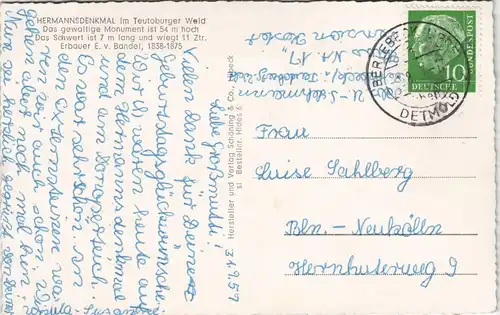 HERMANNSDENKMAL im Teutoburger Wald
Das gewaltige Monument ist 54 m hoch
Das Schwert ist 7 m lang und wiegt 11 Ztr.
Erbauer E. v. Bandel, 1838-1875
31.7.57
Liebe Großmutti!
Vielen Dank für Deinen
Geburtstagsglückwünsche.
Wir waren heute auf
dem Hermannsdenkmal
und am
Es war sehr schön. An
den Externsteinen waren
wir auch schon. Wir
gehen aber noch mal hin.
herzlich gegrüßt
Hersteller und Verlag Schöning & Co., Lübeck
Bestellnr. Hides 6
DEUTSCHE BUNDESPOST
10
DETMOLD
Frau
Luise Sahlberg
Bln.-Neukölln
Herrnhuterweg 9